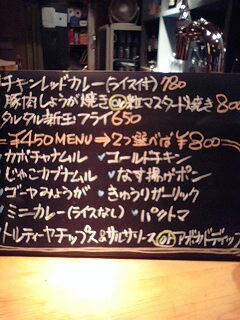 チキンレッドカレー(ライス付)780
豚肉しょうが焼きor粒マスタード焼き800
タルタル新玉フライ650
¥450MENU→2つ選べば¥800
カボチャナムル ・コールドチキン
じゃこカブナムル ・なす揚げポン
ゴーヤみょうが ・きゅうりガーリック
ミニカレー(ライスなし) ・パクトマ
トルティーヤチップス&サルサソースorアボカドディップ